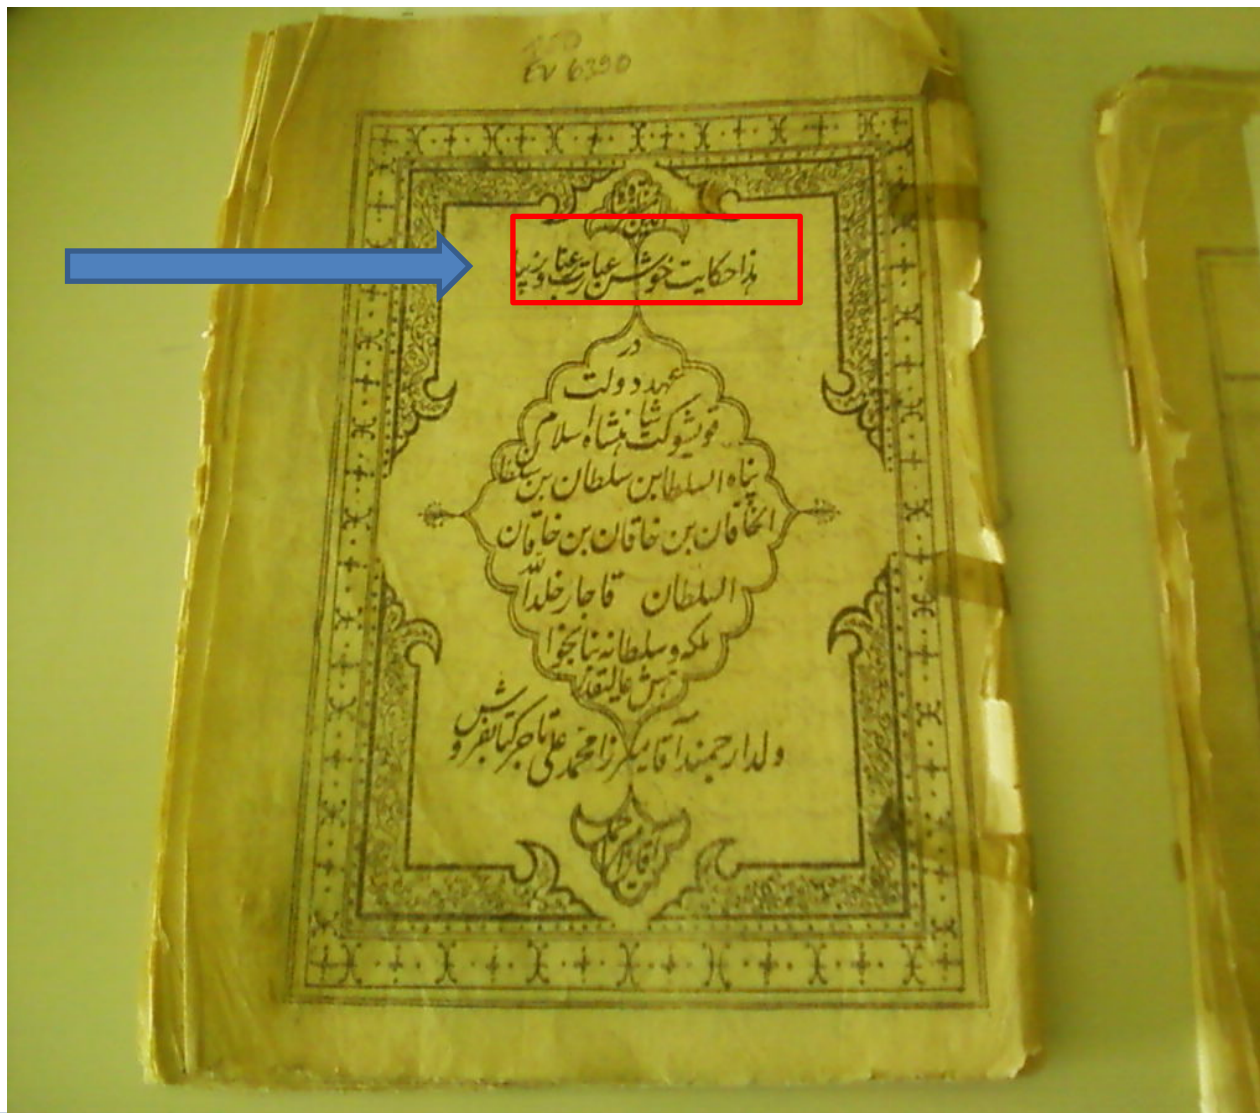 EV 6390
هذا حکایت خوش عبارت رعنا و زیبا
در
عهد دولت
قویشوکت شاهنشاه اسلام
پناه السلطان بن سلطان بن سلطان
الخاقان بن خاقان بن خاقان
السلطان قاجار خلد الله
ملکه و سلطانه بنا بخوا
هش عالیقدر
ولد ارجمند آقا میرزا محمد علی تاجر کتابفروش